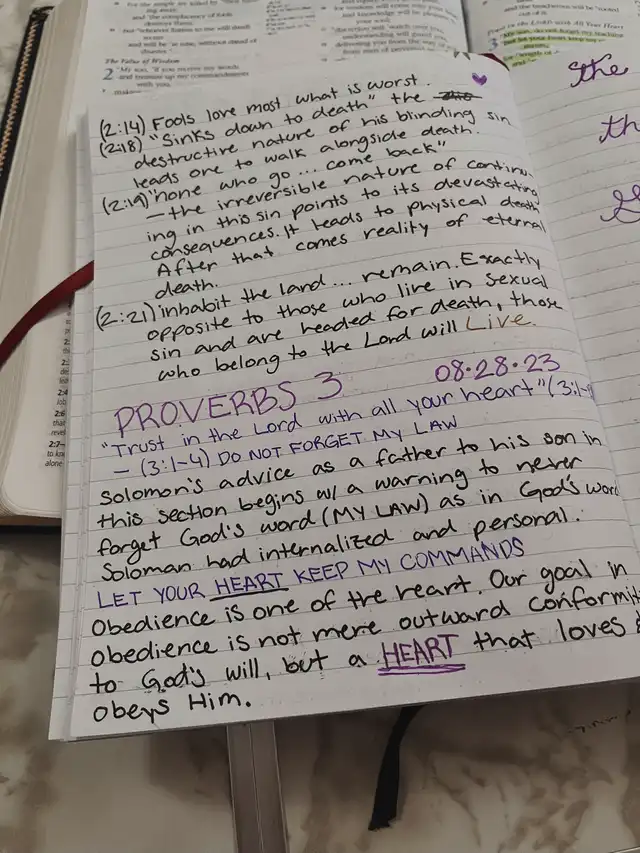 For the simple are killed by their turn-
ing away,
and the complacency of fools
destroys them;
The Value of Wisdom
2 My son, if you receive my words
and treasure up my commandments
with you,
Trust in the LORD with All Your Heart
3 My son, do not forget my teaching
(2:14) Fools love most what is worst.
(2:18) "Sinks down to death" the
destructive nature of his blinding sin
leads one to walk alongside death.
(2:19) "none who go ... come back"
– the irreversible nature of continu
ing in this sin points to its devastating
consequences. It leads to physical death
After that comes reality of eternal
death.
(2:21) "inhabit the land ... remain. Exactly
opposite to those who live in sexual
sin and are headed for death, those
who belong to the Lord will Live.
PROVERBS 3 08·28·23
"Trust in the Lord with all your heart" (3:1-
– (3:1-4) DO NOT FORGET MY LAW
Solomon's advice as a father to his son in
this section begins w/ a warning to never
forget God's word (MY LAW) as in God's word
Soloman had internalized and personal.
LET YOUR HEART KEEP MY COMMANDS
Obedience is one of the heart. Our goal in
obedience is not mere outward conformit
to God's will, but a HEART that loves &
obeys Him.
the
th